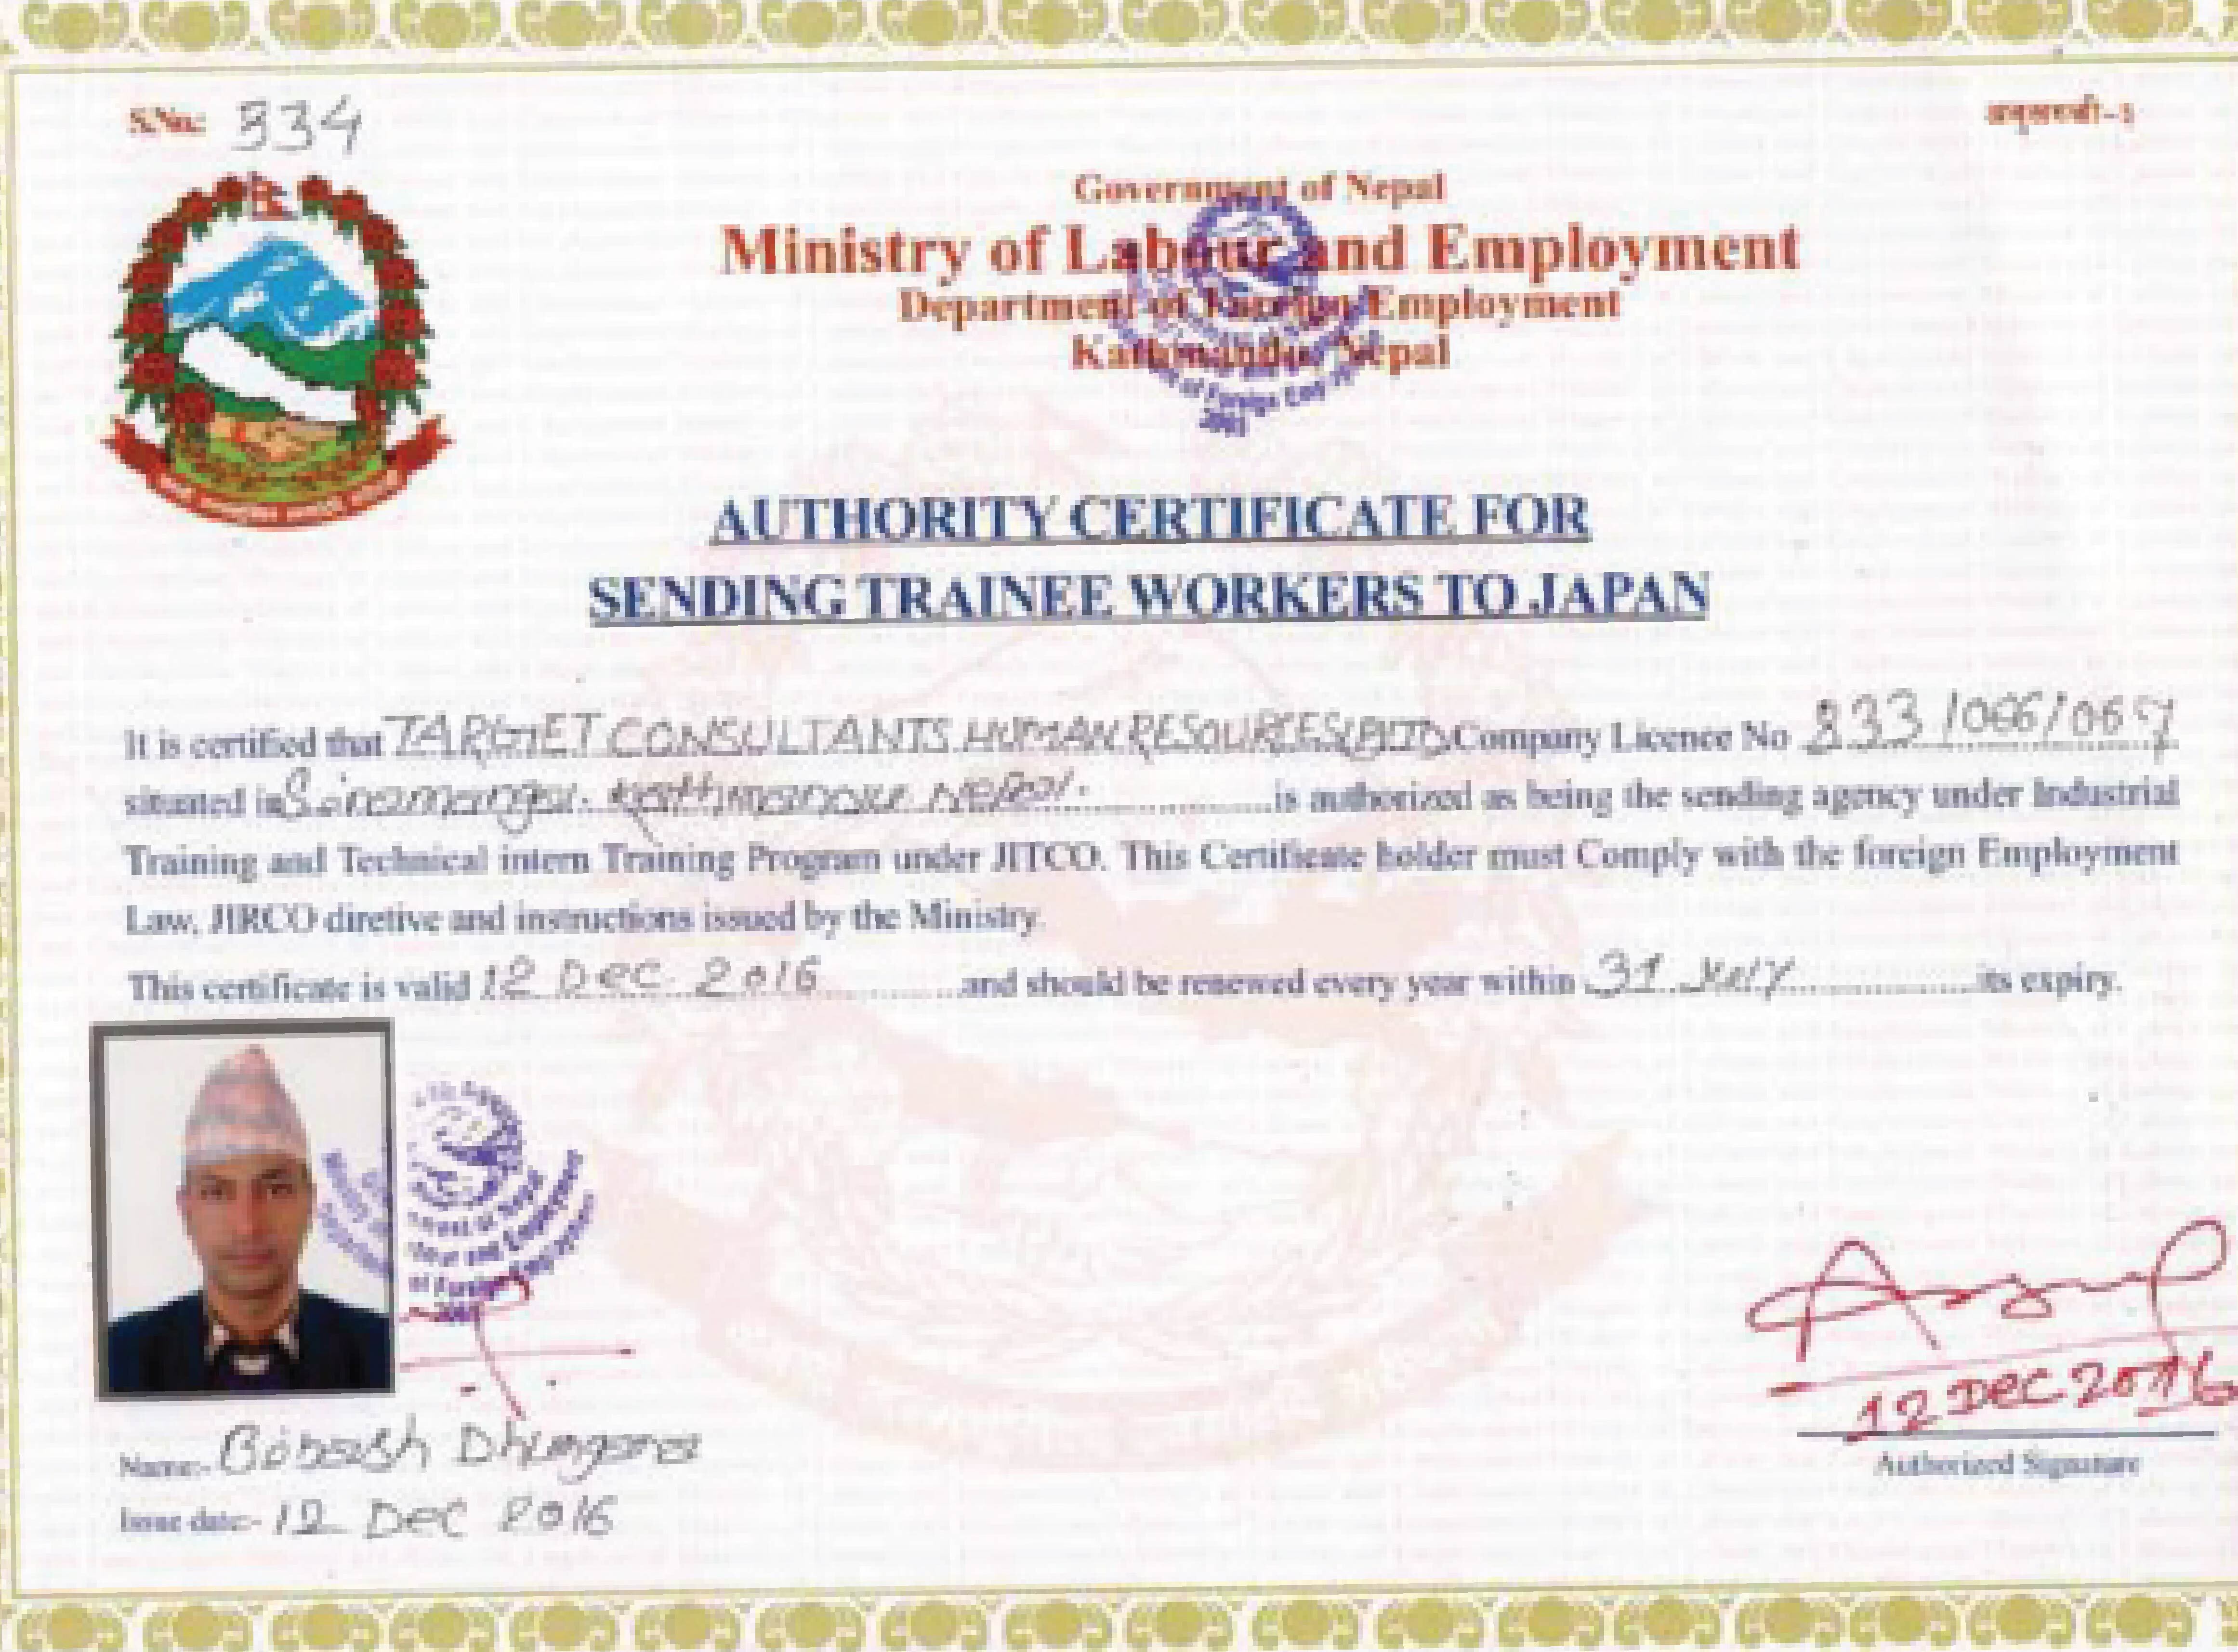 S.No: 334
अनुसूची-३
Government of Nepal
Ministry of Labour and Employment
Department of Foreign Employment
Kathmandu, Nepal
of Foreign
AUTHORITY CERTIFICATE FOR
SENDING TRAINEE WORKERS TO JAPAN
It is certified that TARGET CONSULTANTS HUMAN RESOURCES Company Licence No 833/066/067
situated in Sinamangal Kathmandu Nepal. is authorized as being the sending agency under Industrial
Training and Technical intern Training Program under JITCO. This Certificate holder must Comply with the foreign Employment
Law, JIRCO diretive and instructions issued by the Ministry.
This certificate is valid 12 Dec 2016 and should be renewed every year within 31 July its expiry.
of Nepal
Labour and Employment
of Foreign Employment
12 DEC 2016
Authorized Signature
Name:- Dhungana
Issue date:- 12 Dec 2016